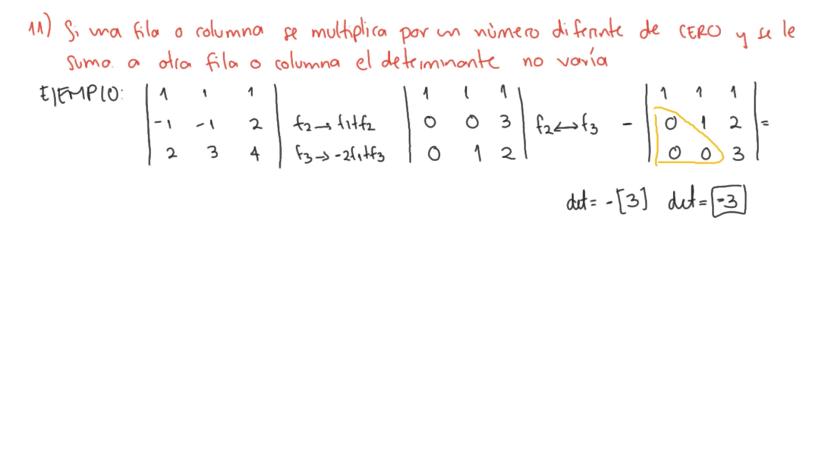 11) Si una fila o columna se multiplica por un número diferente de CERO y se le
suma a otra fila o columna el determinante no varía
EJEMPLO: | 1 1 1 | | 1 1 1 | | 1 1 1 |
| -1 -1 2 | f2→f1+f2 | 0 0 3 | f2↔f3 - | 0 1 2 | =
| 2 3 4 | f3→-2f1+f3 | 0 1 2 | | 0 0 3 |
det = -[3] det = -3